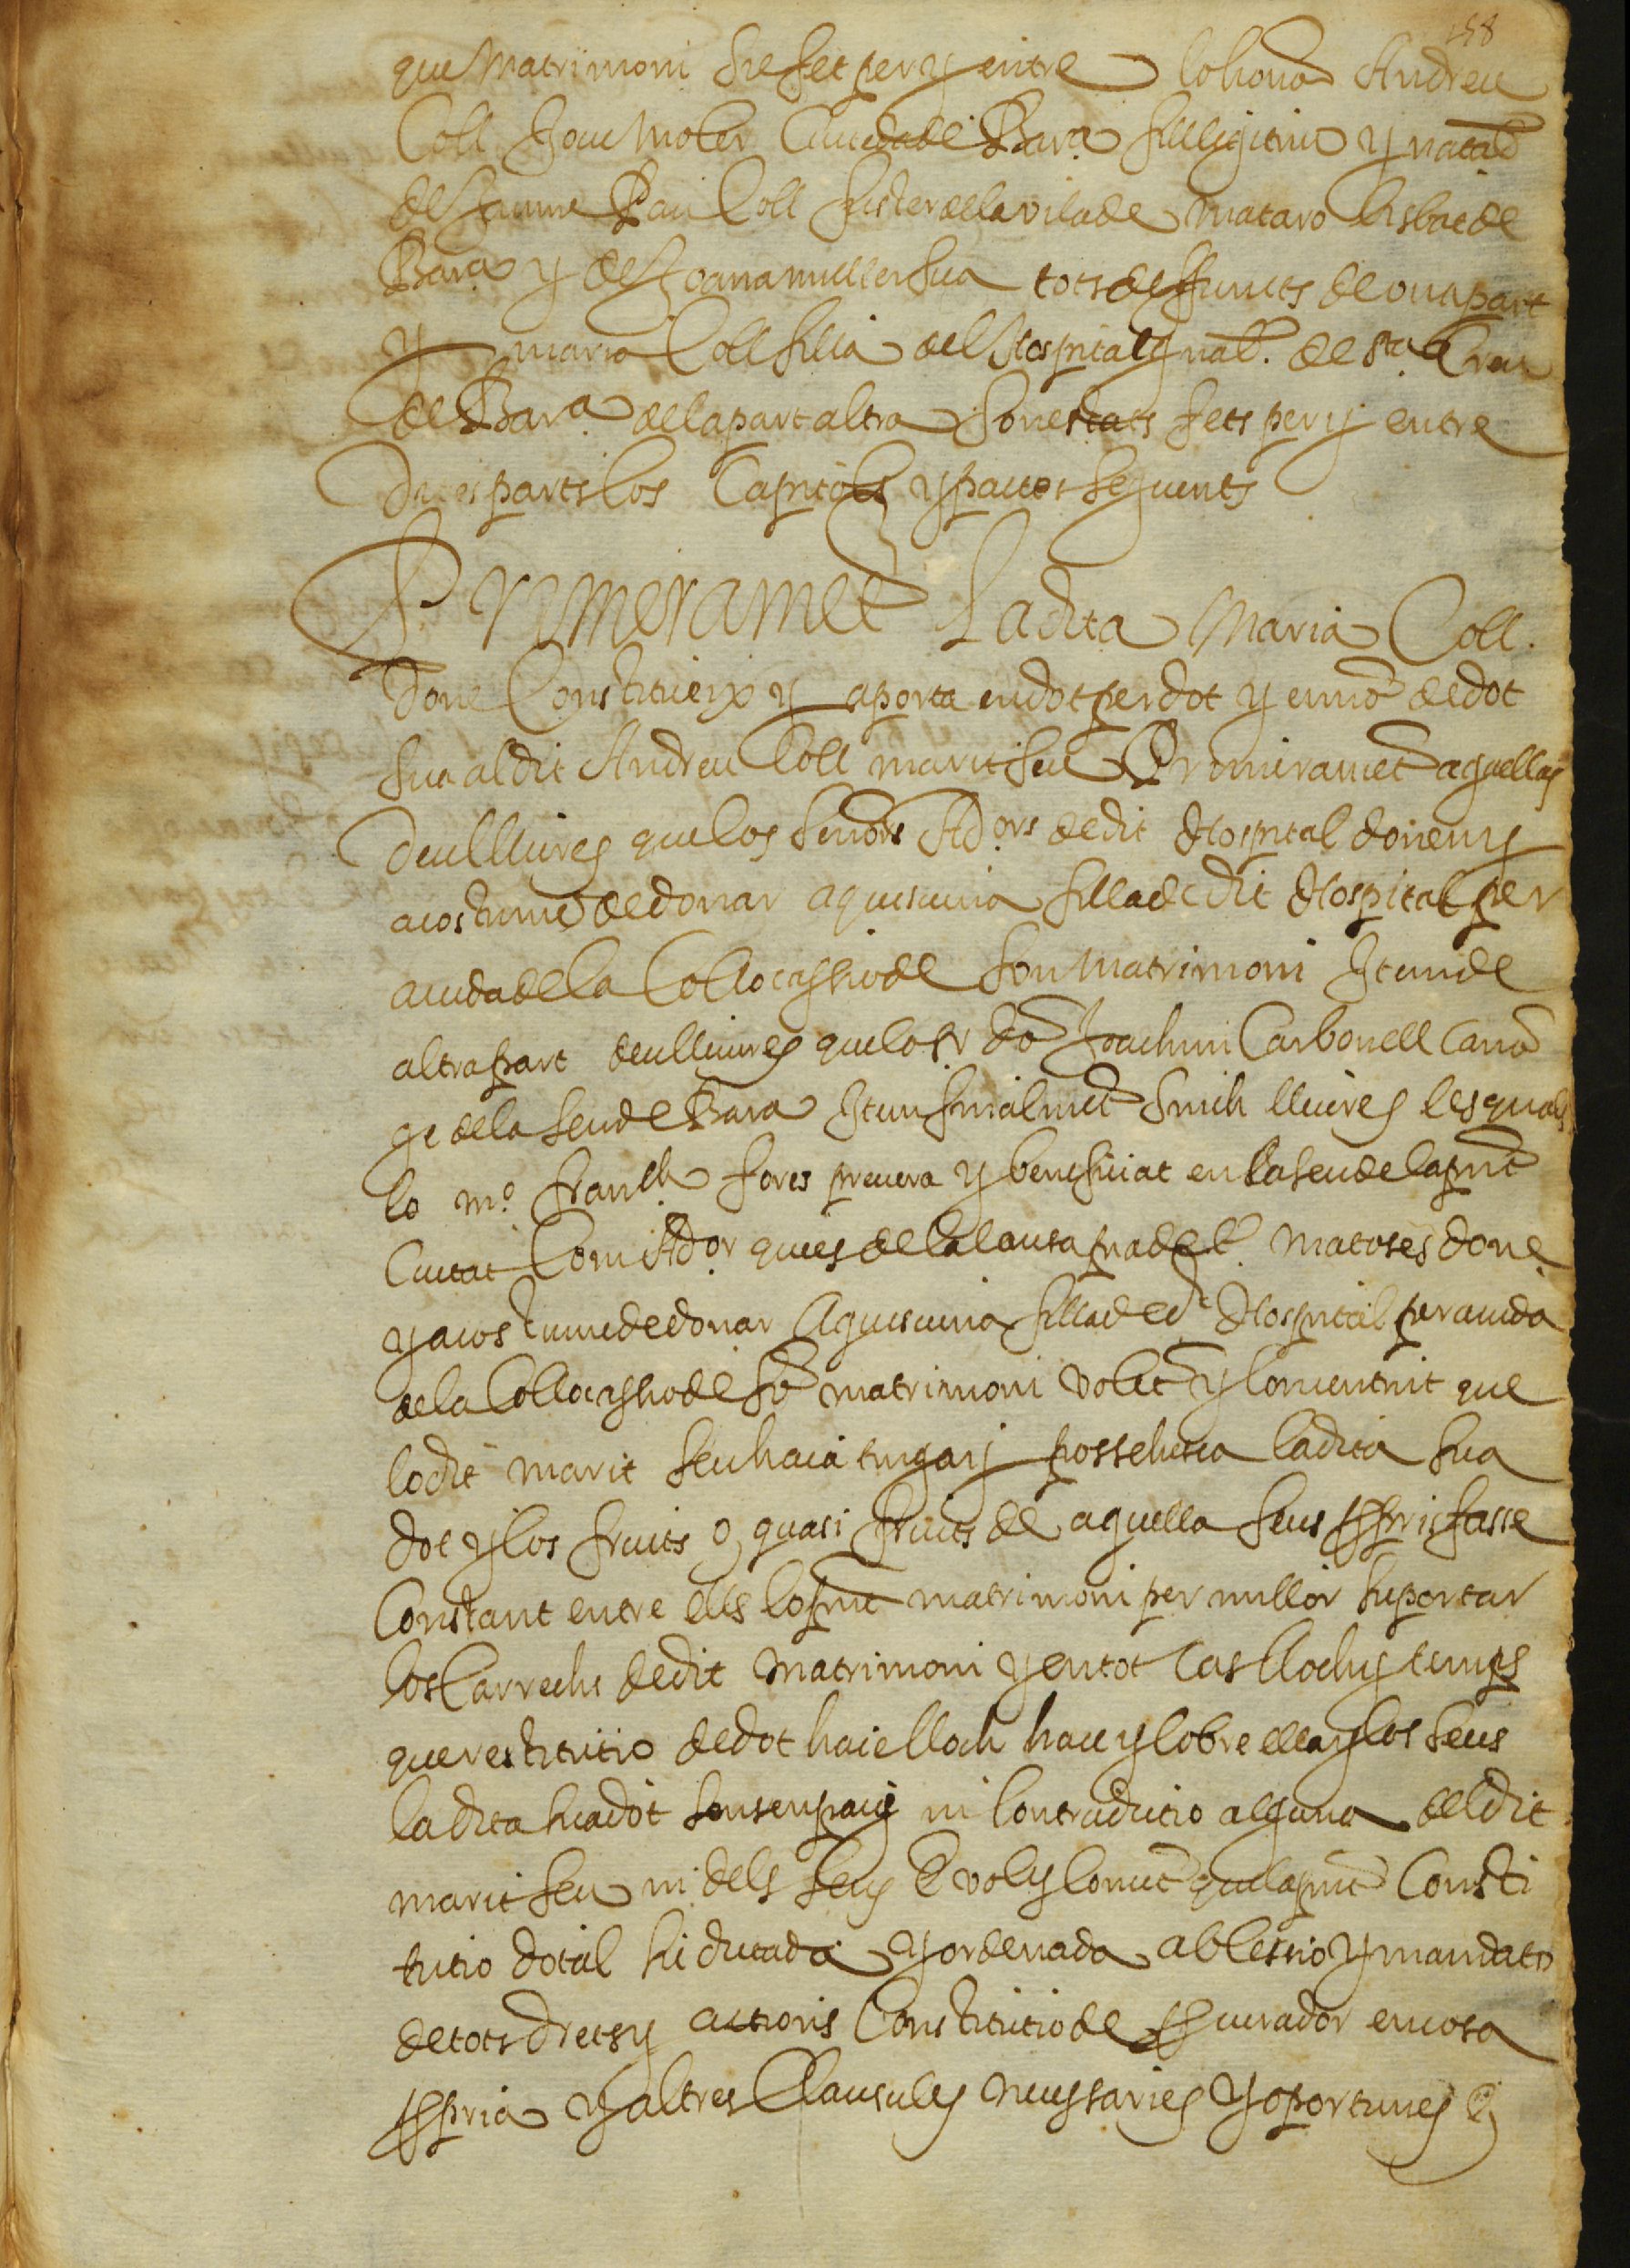 158
que Matrimoni he fet per y entre lo honor Andreu
Coll Jove Moler Ciutada de Bara fill lligitim y natal
de Jaume Pau Coll fuster de la vila de Mataro bisbat de
Bara y de Joana muller sua tots deffuncts de una part
y Maria Coll filla del Hospital gnal. de Sta Creu
de Bara de la part altra son estats fets per y entre
dites parts los Capitols y pactes seguents
Primeramet La dita Maria Coll.
done Constitueix y aporta en dot per dot y en no de dot
sua al dit Andreu Coll marit seu Primeramet aquelles
deu lliures que los senors Adors de dit Hospital donen y
acostume de donar a quiscuna filla de dit Hospital per
aiuda de la Collocassio de son Matrimoni Item de
altra part deu lliures que lo sr do Joachim Carbonell Cano
ge de la Seu de Bara Item finalmet sinch lliures les quals
lo mo. franch fores prevera y benefisiat en la seu de la pnt
Ciutat Com Ador qui es de la causa pia de Matoses done
y acostume de donar A quiscuna filla de dt Hospital per aiuda
de la Collocassio de so matrimoni volet y Consentint que
lo dit marit seu haia tinga y possehesca la dita sua
dot y los fruits o quasi fruits de aquella seus ppris fasse
Constant entre ells lo pnt matrimoni per millor suportar
los Carrechs de dit Matrimoni y en tot Cas lloch y temps
que restitutio de dot haie lloch hau y Cobre ella y los seus
la dita sua dot sens enpaig ni Contradictio alguna del dit
marit seu ni dels seus E vol y Conset que la pnt Consti
tutio dotal sie dictada y ordenada ab Cessio y mandato
de tots drets y actions Constitutio de ppcurador en cosa
ppria y altres Clausules necessaries y oportunes E